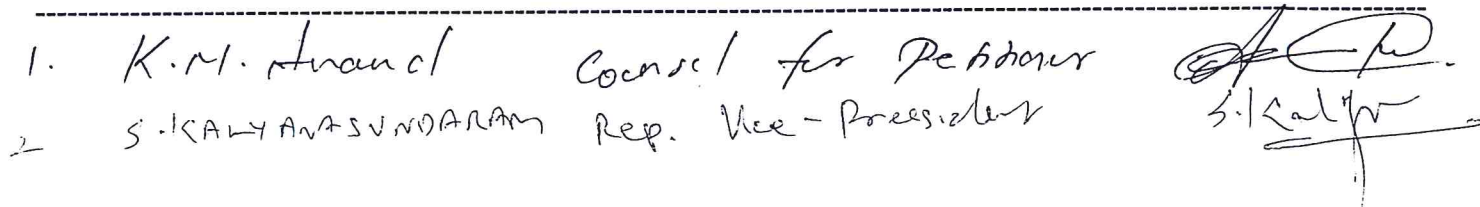 1. K.M. Anand Counsel for Petitioner
2 S. KALYANASUNDARAM Rep. Vice-President S. Kalyn